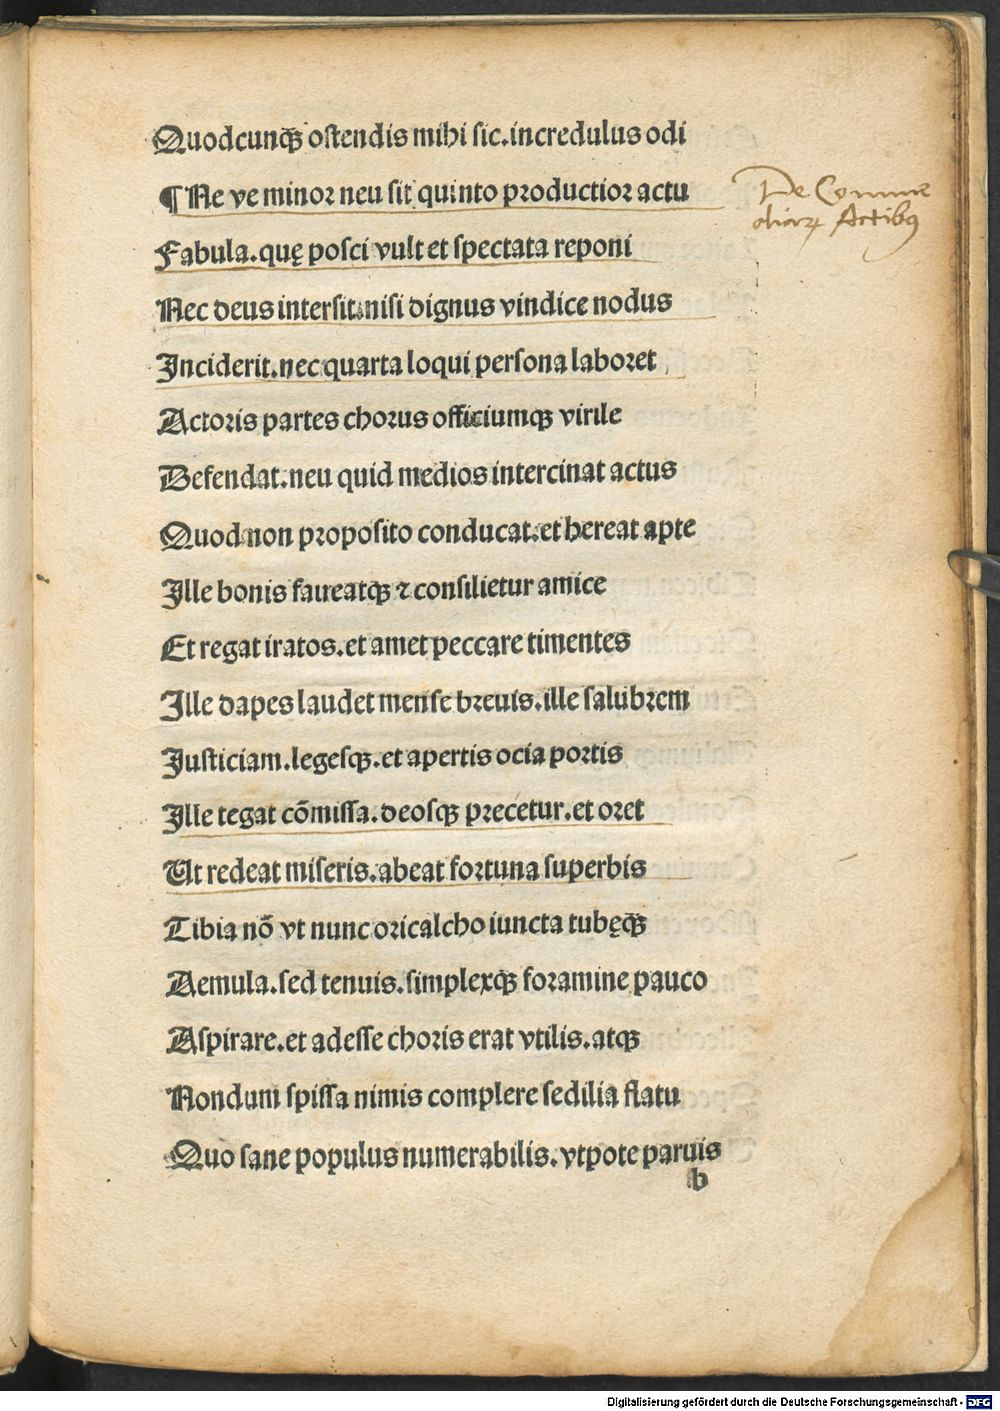 Quodcunqꝫ ostendis mihi sic.incredulus odi
¶ Ne ve minor neu sit quinto productior actu
Fabula.quę posci vult et spectata reponi
Nec deus intersit.nisi dignus vindice nodus
Inciderit.nec quarta loqui persona laboret
Actoris partes chorus officiumqꝫ virile
Defendat.neu quid medios intercinat actus
Quod non proposito conducat.et hereat apte
Ille bonis faueatqꝫ ⁊ consilietur amice
Et regat iratos.et amet peccare timentes
Ille dapes laudet mense breuis.ille salubrem
Iusticiam.legesqꝫ.et apertis ocia portis
Ille tegat cōmissa.deosqꝫ precetur.et oret
Ut redeat miseris.abeat fortuna superbis
Tibia nō vt nunc oricalcho iuncta tubęqꝫ
Aemula.sed tenuis.simplexqꝫ foramine pauco
Aspirare.et adesse choris erat vtilis.atqꝫ
Nondum spissa nimis complere sedilia flatu
Quo sane populus numerabilis.vtpote paruis
b
De Commoe
diarꝝ Actibꝰ
Digitalisierung gefördert durch die Deutsche Forschungsgemeinschaft - DFG